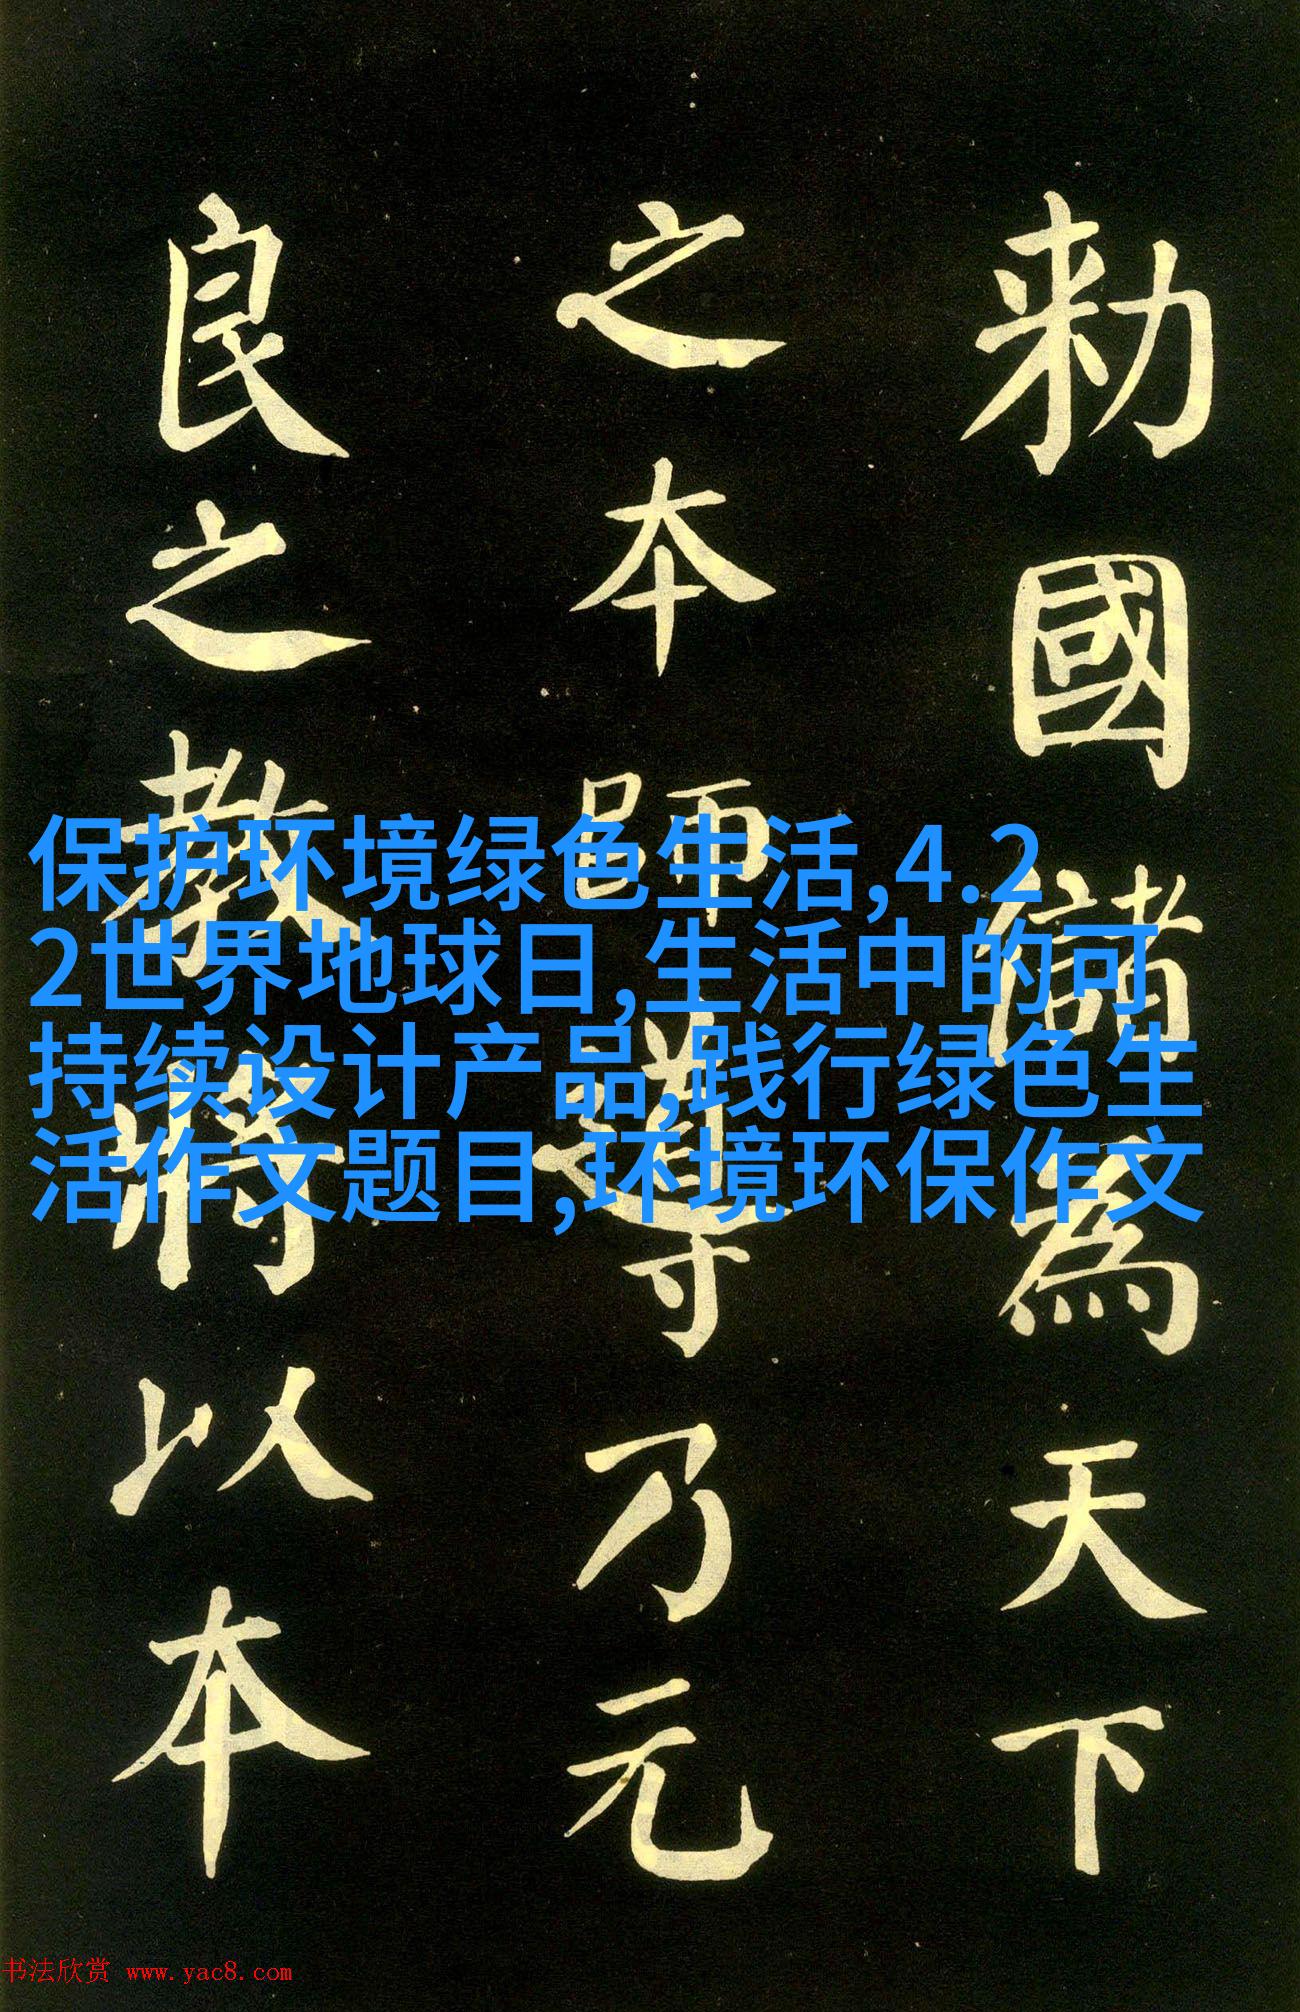 勑國儲為天下
之本師導乃元
良之教將以本
保护环境绿色生活,4.2
2世界地球日,生活中的可
持续设计产品,践行绿色生
活作文题目,环境环保作文
书法欣赏 www.yac8.com